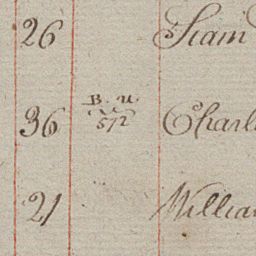 26 Siam
B. U.
36 572 Charl
21 William